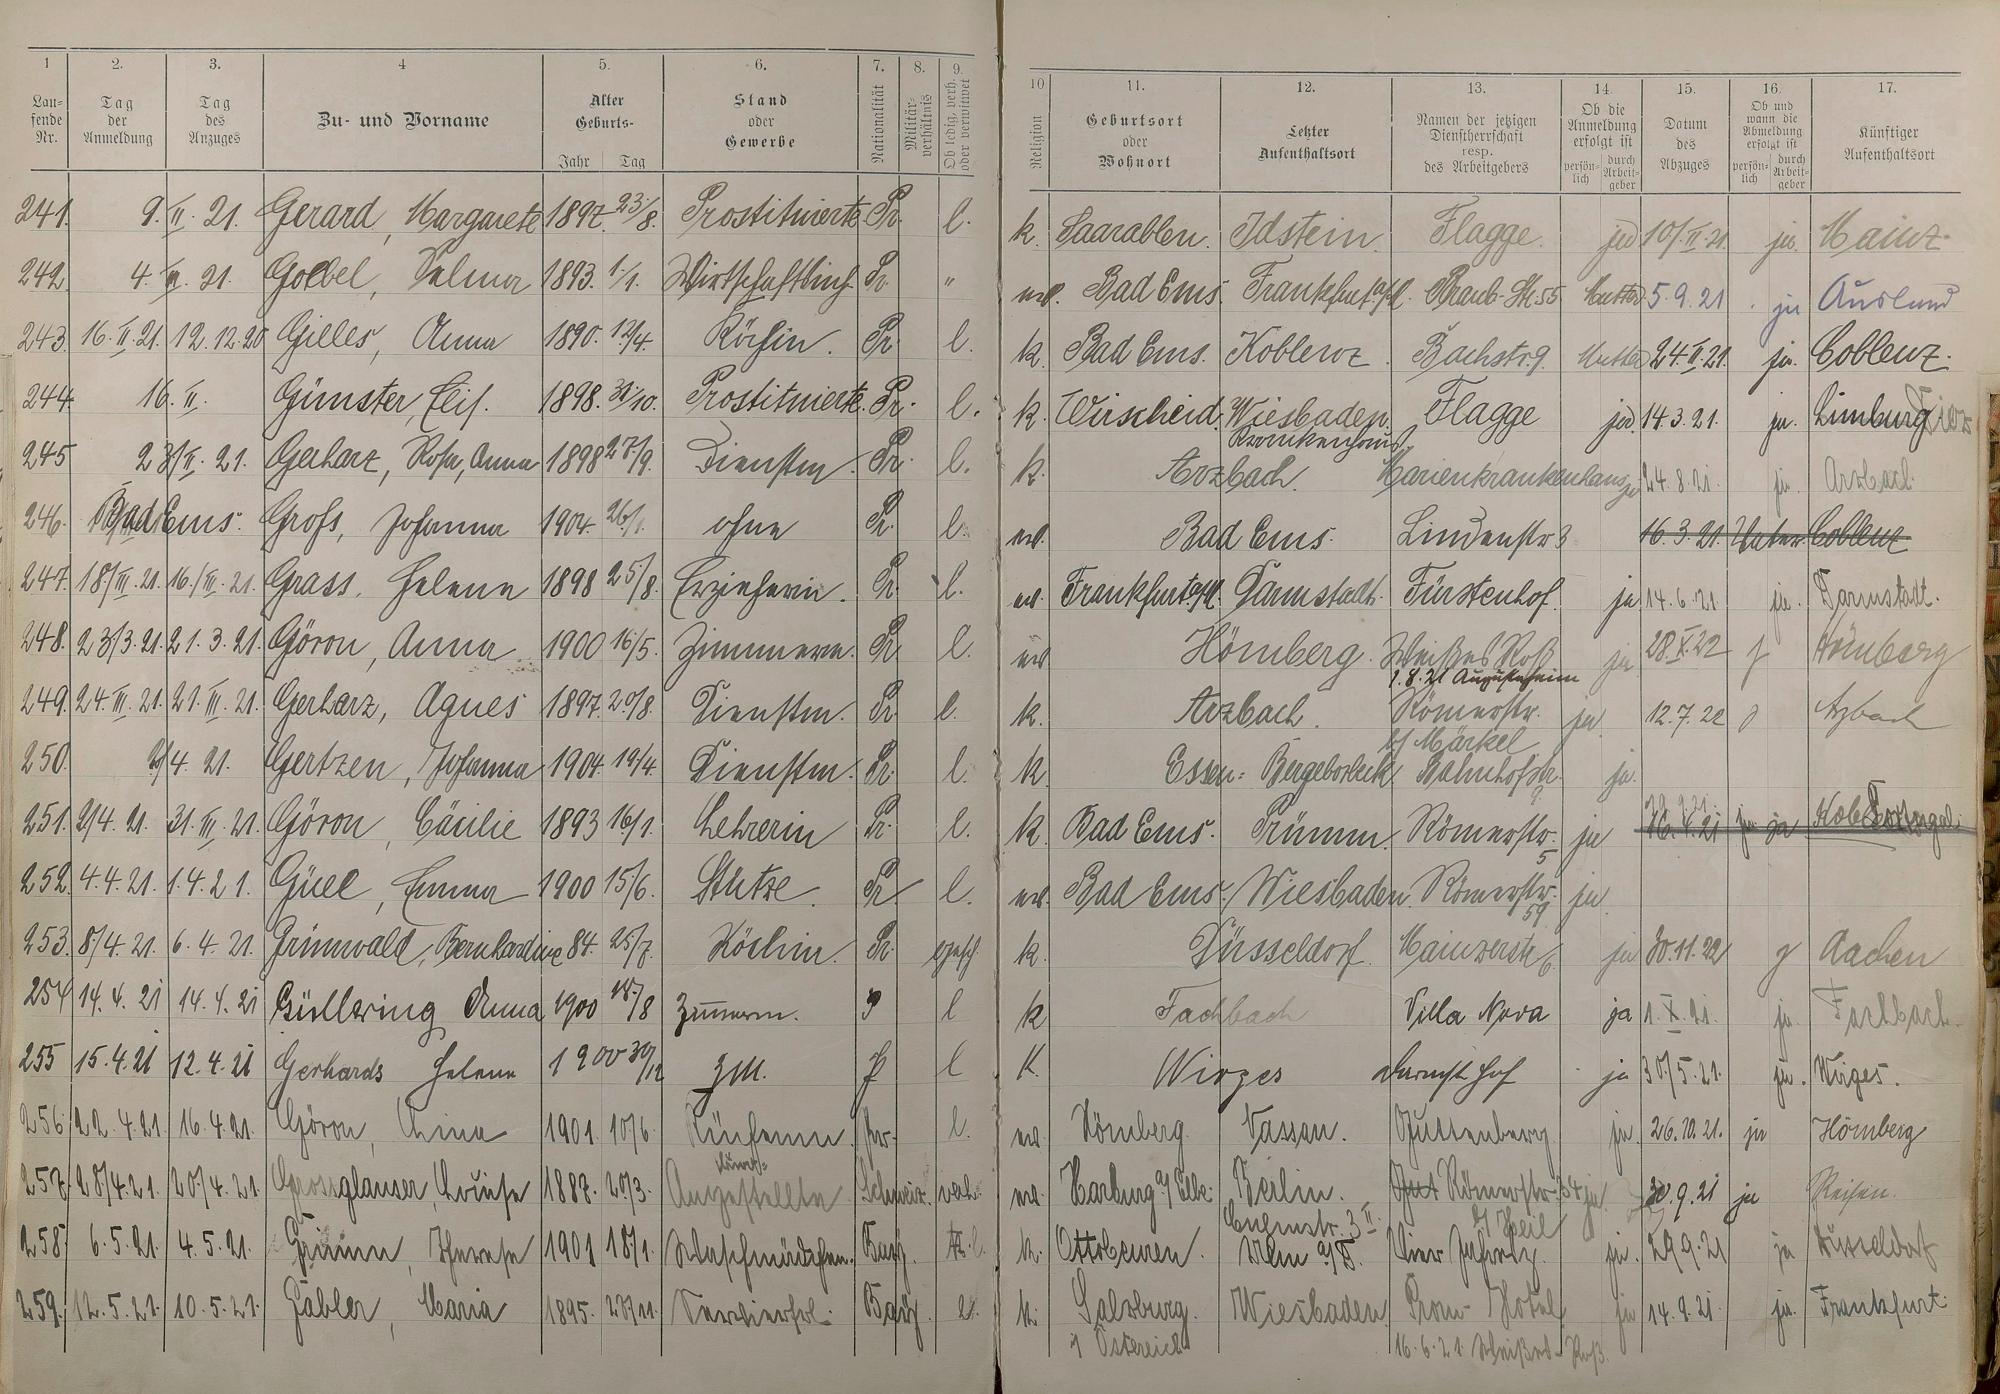 1 2. 3. 4 5. 6. 7. 8. 9. 10 11. 12. 13. 14. 15. 16. 17.
Lau-fende Nr. Tag der Anmeldung Tag des Anzuges Zu- und Vorname Alter Geburts- Jahr Tag Stand oder Gewerbe Nationalität Militär-verhältnis Ob ledig, verh. oder verwitwet Religion Geburtsort oder Wohnort Letzter Aufenthaltsort Namen der jetzigen Dienstherrschaft resp. des Arbeitgebers Ob die Anmeldung erfolgt ist persön-lich durch Arbeit-geber Datum des Abzuges Ob und wann die Abmeldung erfolgt ist persön-lich durch Arbeit-geber Künftiger Aufenthaltsort
241. 9. II. 21. Gerard, Margarete 1897. 23/8. Prostituierte Pr. l. k. Saarablen. Idstein. Flagge. 10/II. 21 ja. Mainz.
242. 4. 21. Goebel, Selma 1893. 1./1. Pr. " Bad Ems. Frankfurt a/M. 55 Mutter 5. 9. 21 ja Ausland
243. 16. II. 21. 12. 12. 20 Gilles, Anna 1890. 12/4. Köchin. Pr. l. k. Bad Ems. Koblenz. Bachstr. 9. Mutter 24. II. 21. ja. Coblenz.
244. 16. II. Günster, Elis. 1898. 31/10. Prostituierte. Pr. l. k. Wirscheid. Wiesbaden. Flagge 14. 3. 21. ja. Limburg
245 23/II. 21. Gerharz, Rosa, Anna 1898 27/9. Dienstm. Pr. l. Krankenhaus k. Arzbach. Marienkrankenhaus 24. 8. 21. ja. Arzbach
246. Bad Ems. Groß, Johanna 1904. 26/1. ohne Pr. l. Bad Ems. Lindenstr 3 16. 3. 21. Coblenz
247. 18/III. 21. 16./III. 21. Grass, Helene 1898 25/8. Erzieherin. Pr. l. Frankfurt a/M. Darmstadt. Fürstenhof. ja 14. 6. 21 ja. Darmstadt.
248. 23/3. 21. 21. 3. 21. Göron, Anna 1900 16/5. Zimmerm. Pr l. Hömberg. Weißes Roß ja 28. X. 22 Hömberg
1. 8. 21 Augustaheim
249. 24. III. 21. 21. III. 21. Gerharz, Agnes 1897. 20/8. Dienstm. Pr. l. k. Arzbach. Römerstr. ja 12. 7. 22 Arzbach
b/ Märkel
250. 4. 21. Gertzen, Johanna 1904. 19/4. Dienstm. Pr. l. k. Essen= Bergeborbeck Bahnhofstr. 9. ja.
251. 2/4. 21. 31. III. 21. Göron, Cäcilie 1893 16/1. Lehrerin Pr. l. k. Bad Ems. Prümm. Römerstr. 5 ja 16. 4. 21 ja
252. 4. 4. 21. 1. 4. 21. Güll, Emma 1900 15./6. Stütze. Pr l. Bad Ems. Wiesbaden. Römerstr. 59 ja
253. 8/4. 21. 6. 4. 21. Grünwald, Bernhardine 84. 25/7. Köchin. Pr. gesch. k. Düsseldorf. Mainzerstr 6. ja 30. 11. 22 Aachen
254 14. 4. 21 14. 4. 21 Güllering Anna 1900 18./8 Zimmerm. P l k Fachbach Villa Nova ja 1. X. 21. ja. Fachbach.
255 15. 4. 21 12. 4. 21 Gerhards Helene 1900 30/12 ZM. P l K. Wirges Darmst Hof ja 30/5. 21. ja. Wirges.
256. 22. 4. 21. 16. 4. 21. Göron, 1901. 10/6. Pr. l. Hömberg. Nassau. Guttenberg. ja. 26. 10. 21. ja Hömberg
257. 28/4. 21. 20./4. 21. Grossglauser, Louise 1887. 20/3. Angestellte Schweiz. verh. Harburg a/Elbe. Berlin. Römerstr. 34 ja 30. 9. 21 ja Reisen.
b/ Heil
258. 6. 5. 21. 4. 5. 21. Grimm, Therese 1901 18/1. Waschmädchen. Bay. l. k. Ottobeuren. Ulm a/D. Vier Jahresz. ja. 29 9. 21 ja Düsseldorf
259. 12. 5. 21. 10. 5. 21. Gäbler, Maria 1895. 20/11. Servierfrl. Bay. k. Salzburg. Wiesbaden Prom- Hotel ja 14. 9. 21. ja. Frankfurt.
i/ Östereich 16. 6. 21. Weißes Roß.